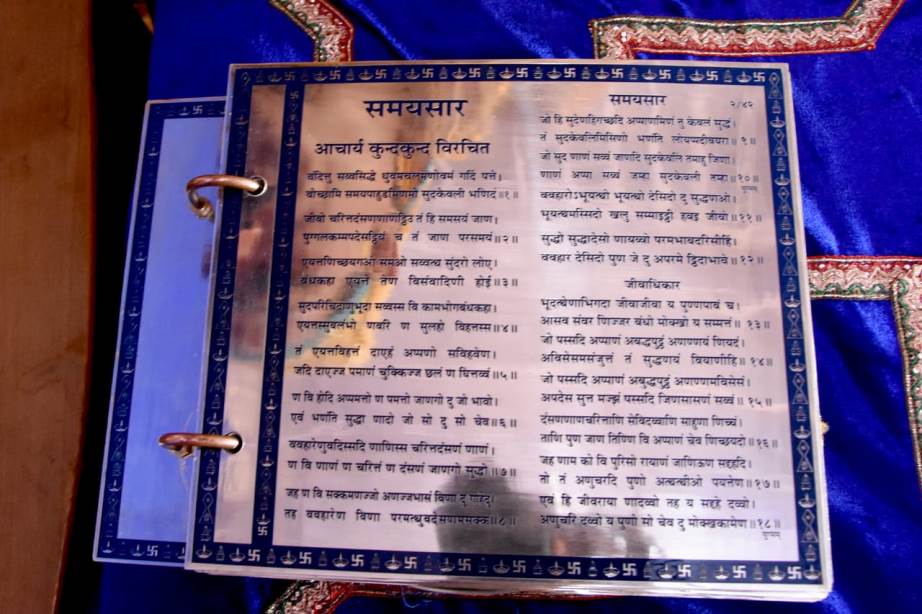 समयसार
आचार्य कुन्दकुन्द विरचित
वंदित्तु सव्वसिद्धे धुवमचलमणोवमं गदिं पत्ते।
वोच्छामि समयपाहुडमिणमो सुदकेवली भणिदं॥१॥
जीवो चरित्तदंसणणाणट्ठिउ तं हि ससमयं जाण।
पुग्गलकम्मपदेसट्ठियं च तं जाण परसमयं॥२॥
एयत्तणिच्छयगओ समओ सव्वत्थ सुंदरो लोए।
बंधकहा एयत्ते तेण विसंवादिणी होई॥३॥
सुदपरिचिदाणुभूदा सव्वस्स वि कामभोगबंधकहा।
एयत्तस्सुवलंभो णवरि ण सुलहो विहत्तस्स॥४॥
तं एयत्तविहत्तं दाएहं अप्पणो सविहवेण।
जदि दाएज्ज पमाणं चुक्किज्ज छलं ण घित्तव्वं॥५॥
ण वि होदि अप्पमत्तो ण पमत्तो जाणगो दु जो भावो।
एवं भणंति सुद्धा णादो जो सो दु सो चेव॥६॥
ववहारेणुवदिस्सदि णाणिस्स चरित्तदंसणं णाणं।
ण वि णाणं ण चरित्तं ण दंसणं जाणगो सुद्धो॥७॥
जह ण वि सक्कमणज्जो अणज्जभासं विणा दु गाहेदुं
तह ववहारेण विणा परमत्थुवदेसणमसक्कं॥८॥
समयसार
२/४२
जो हि सुदेणहिगच्छदि अप्पाणमिणं तु केवलं सुद्धं।
तं सुदकेवलिमिसिणो भणंति लोयप्पदीवयरा॥९॥
जो सुद णाणं सव्वं जाणदि सुदकेवलिं तमाहु जिणा।
णाणं अप्पा सव्वं जम्हा सुदकेवली तम्हा॥१०॥
युग्मम्
ववहारोऽभूयत्थो भूयत्थो देसिदो दु सुद्धणओ।
भूयत्थमस्सिदो खलु सम्माइट्ठी हवइ जीवो॥११॥
सुद्धो सुद्धादेसो णायव्वो परमभावदरिसीहिं।
ववहार देसिदो पुण जे दु अपरमे ट्ठिदाभावे॥१२॥
जीवाधिकार
भूदत्थेणाभिगदा जीवाजीवा य पुण्णपावं च।
आसव संवर णिज्जर बंधो मोक्खो य सम्मत्तं॥१३॥
जो पस्सदि अप्पाणं अबद्धपुट्ठं अणण्णयं णियदं।
अविसेसमसंजुत्तं तं सुद्धणयं वियाणीहि॥१४॥
जो पस्सदि अप्पाणं अबुद्धपुट्ठं अणण्णमविसेसं।
अपदेस सुत्त मज्झं पस्सदि जिणसासणं सव्वं॥१५॥
दंसणणाणचरित्ताणि सेविदव्वाणि साहुणा णिच्चं।
ताणि पुण जाण तिण्णि वि अप्पाणं चेव णिच्छयदो॥१६॥
जह णाम को वि पुरिसो रायाणं जाणिऊण सद्दहदि।
तो तं अणुचरदि पुणो अत्थत्थीओ पयत्तेण॥१७॥
एवं हि जीवराया णादव्वो तह य सद्दहे दव्वो।
अणुचरि दव्वो य पुणो सो चेव दु मोक्खकामेण॥१८॥
युग्मम्